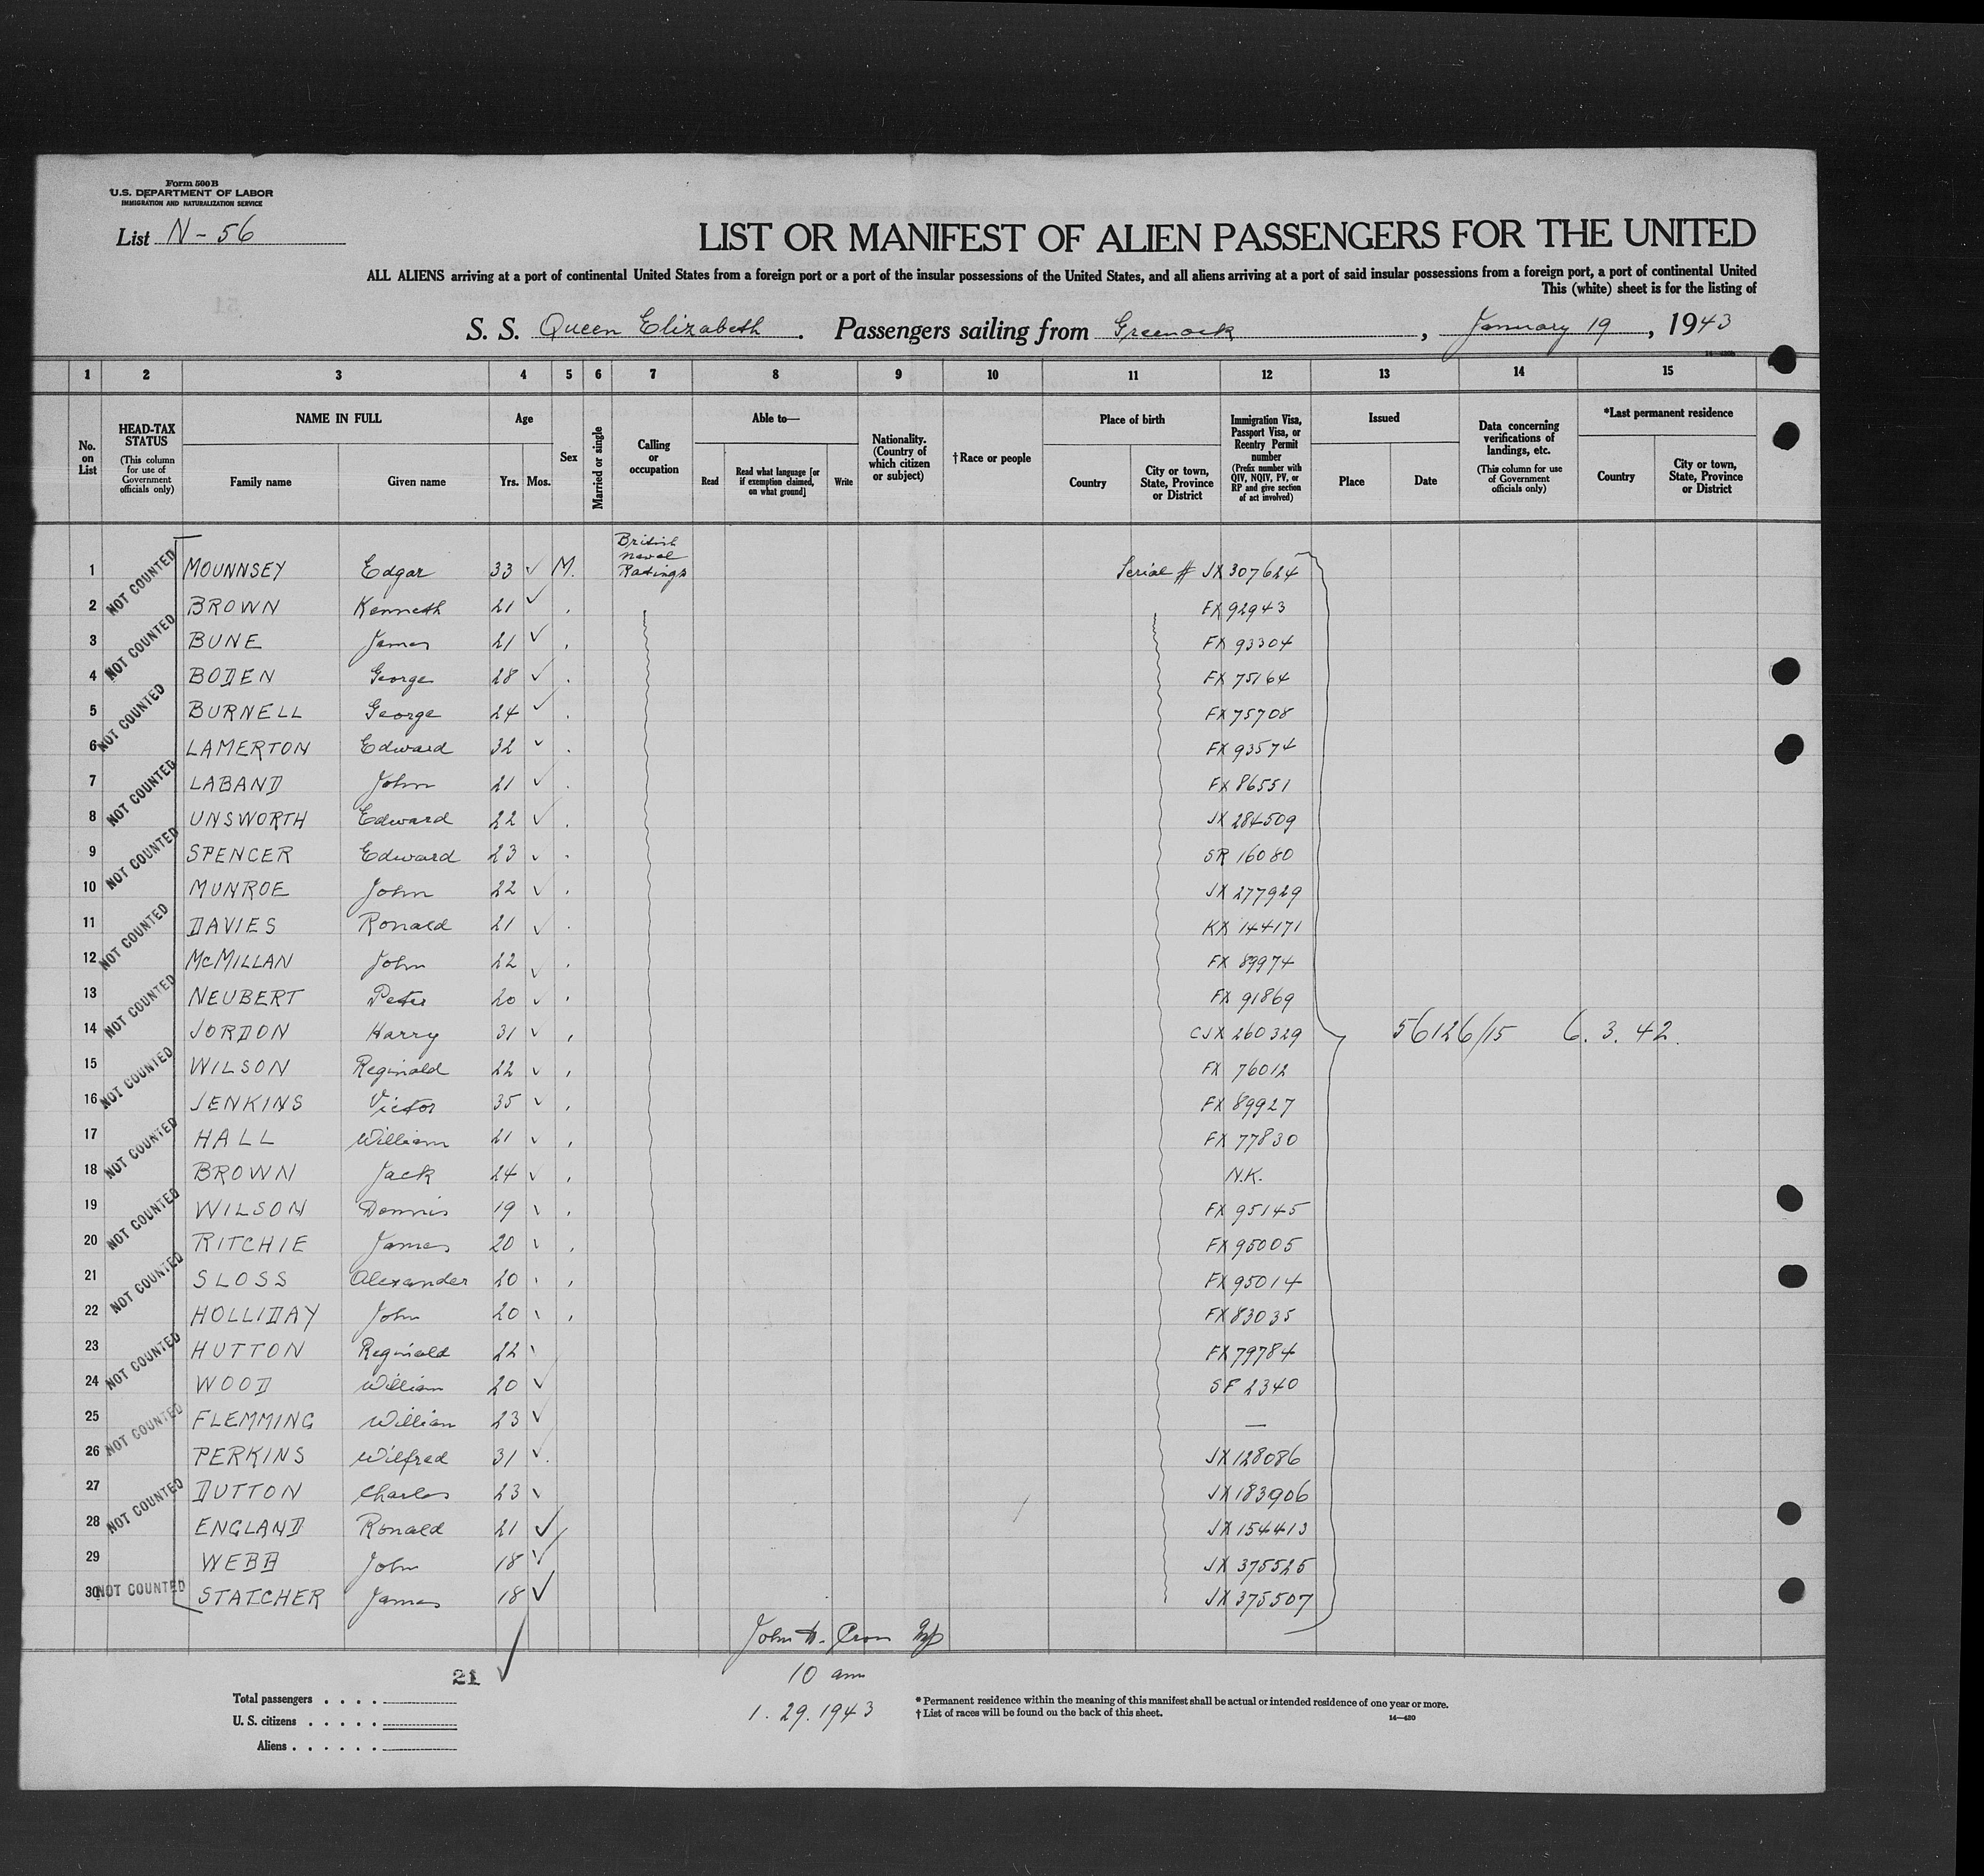 Form 500B
U.S. DEPARTMENT OF LABOR
IMMIGRATION AND NATURALIZATION SERVICE
List N-56
LIST OR MANIFEST OF ALIEN PASSENGERS FOR THE UNITED
ALL ALIENS arriving at a port of continental United States from a foreign port or a port of the insular possessions of the United States, and all aliens arriving at a port of said insular possessions from a foreign port, a port of continental United
This (white) sheet is for the listing of
S. S. Queen Elizabeth. Passengers sailing from Greenock, January 19, 1943
1 2 3 4 5 6 7 8 9 10 11 12 13 14 15
No. on List
HEAD-TAX STATUS (This column for use of Government officials only)
NAME IN FULL
Family name Given name
Age
Yrs. Mos.
Sex
Married or single
Calling or occupation
Able to—
Read
Read what language [or if exemption claimed, on what ground]
Write
Nationality. (Country of which citizen or subject)
†Race or people
Place of birth
Country
City or town, State, Province or District
Immigration Visa, Passport Visa, or Reentry Permit number (Prefix number with QIV, NQIV, PV, or RP and give section of act involved)
Issued
Place Date
Data concerning verifications of landings, etc. (This column for use of Government officials only)
*Last permanent residence
Country
City or town, State, Province or District
1 NOT COUNTED MOUNNSEY Edgar 33 ✓ M. British Naval Ratings Serial # JX 307624
2 BROWN Kenneth 21 ✓ FX 92943
3 NOT COUNTED BUNE James 21 ✓ FX 93304
4 BODEN George 28 ✓ FX 75164
5 NOT COUNTED BURNELL George 24 ✓ FX 75708
6 LAMERTON Edward 32 ✓ FX 93574
7 NOT COUNTED LABAND John 21 ✓ FX 86551
8 UNSWORTH Edward 22 ✓ JX 284509
9 NOT COUNTED SPENCER Edward 23 ✓ SR 16080
10 MUNROE John 22 ✓ JX 277929
11 NOT COUNTED DAVIES Ronald 21 ✓ KX 144171
12 McMILLAN John 22 ✓ FX 89974
13 NOT COUNTED NEUBERT Peter 20 ✓ FX 91869
14 JORDON Harry 31 ✓ CJX 260329 56126/15 6. 3. 42.
15 NOT COUNTED WILSON Reginald 22 ✓ FX 76012
16 JENKINS Victor 35 ✓ FX 89927
17 NOT COUNTED HALL William 21 ✓ FX 77830
18 BROWN Jack 24 ✓ N.K.
19 NOT COUNTED WILSON Dennis 19 FX 95145
20 RITCHIE James 20 FX 95005
21 NOT COUNTED SLOSS Alexander 20 FX 95014
22 HOLLIDAY John 20 FX 83035
23 NOT COUNTED HUTTON Reginald 22 FX 79784
24 WOOD William 20 ✓ SF 2340
25 NOT COUNTED FLEMMING William 23 ✓ —
26 PERKINS Wilfred 31 ✓ JX 128086
27 NOT COUNTED DUTTON Charles 23 ✓ JX 183906
28 ENGLAND Ronald 21 ✓ JX 154413
29 WEBB John 18 ✓ JX 375525
30 NOT COUNTED STATCHER James 18 ✓ JX 375507
John
21 ✓
10 am
1. 29. 1943
Total passengers . . . .
U. S. citizens . . . . .
Aliens . . . . . .
* Permanent residence within the meaning of this manifest shall be actual or intended residence of one year or more.
† List of races will be found on the back of this sheet.
14—420